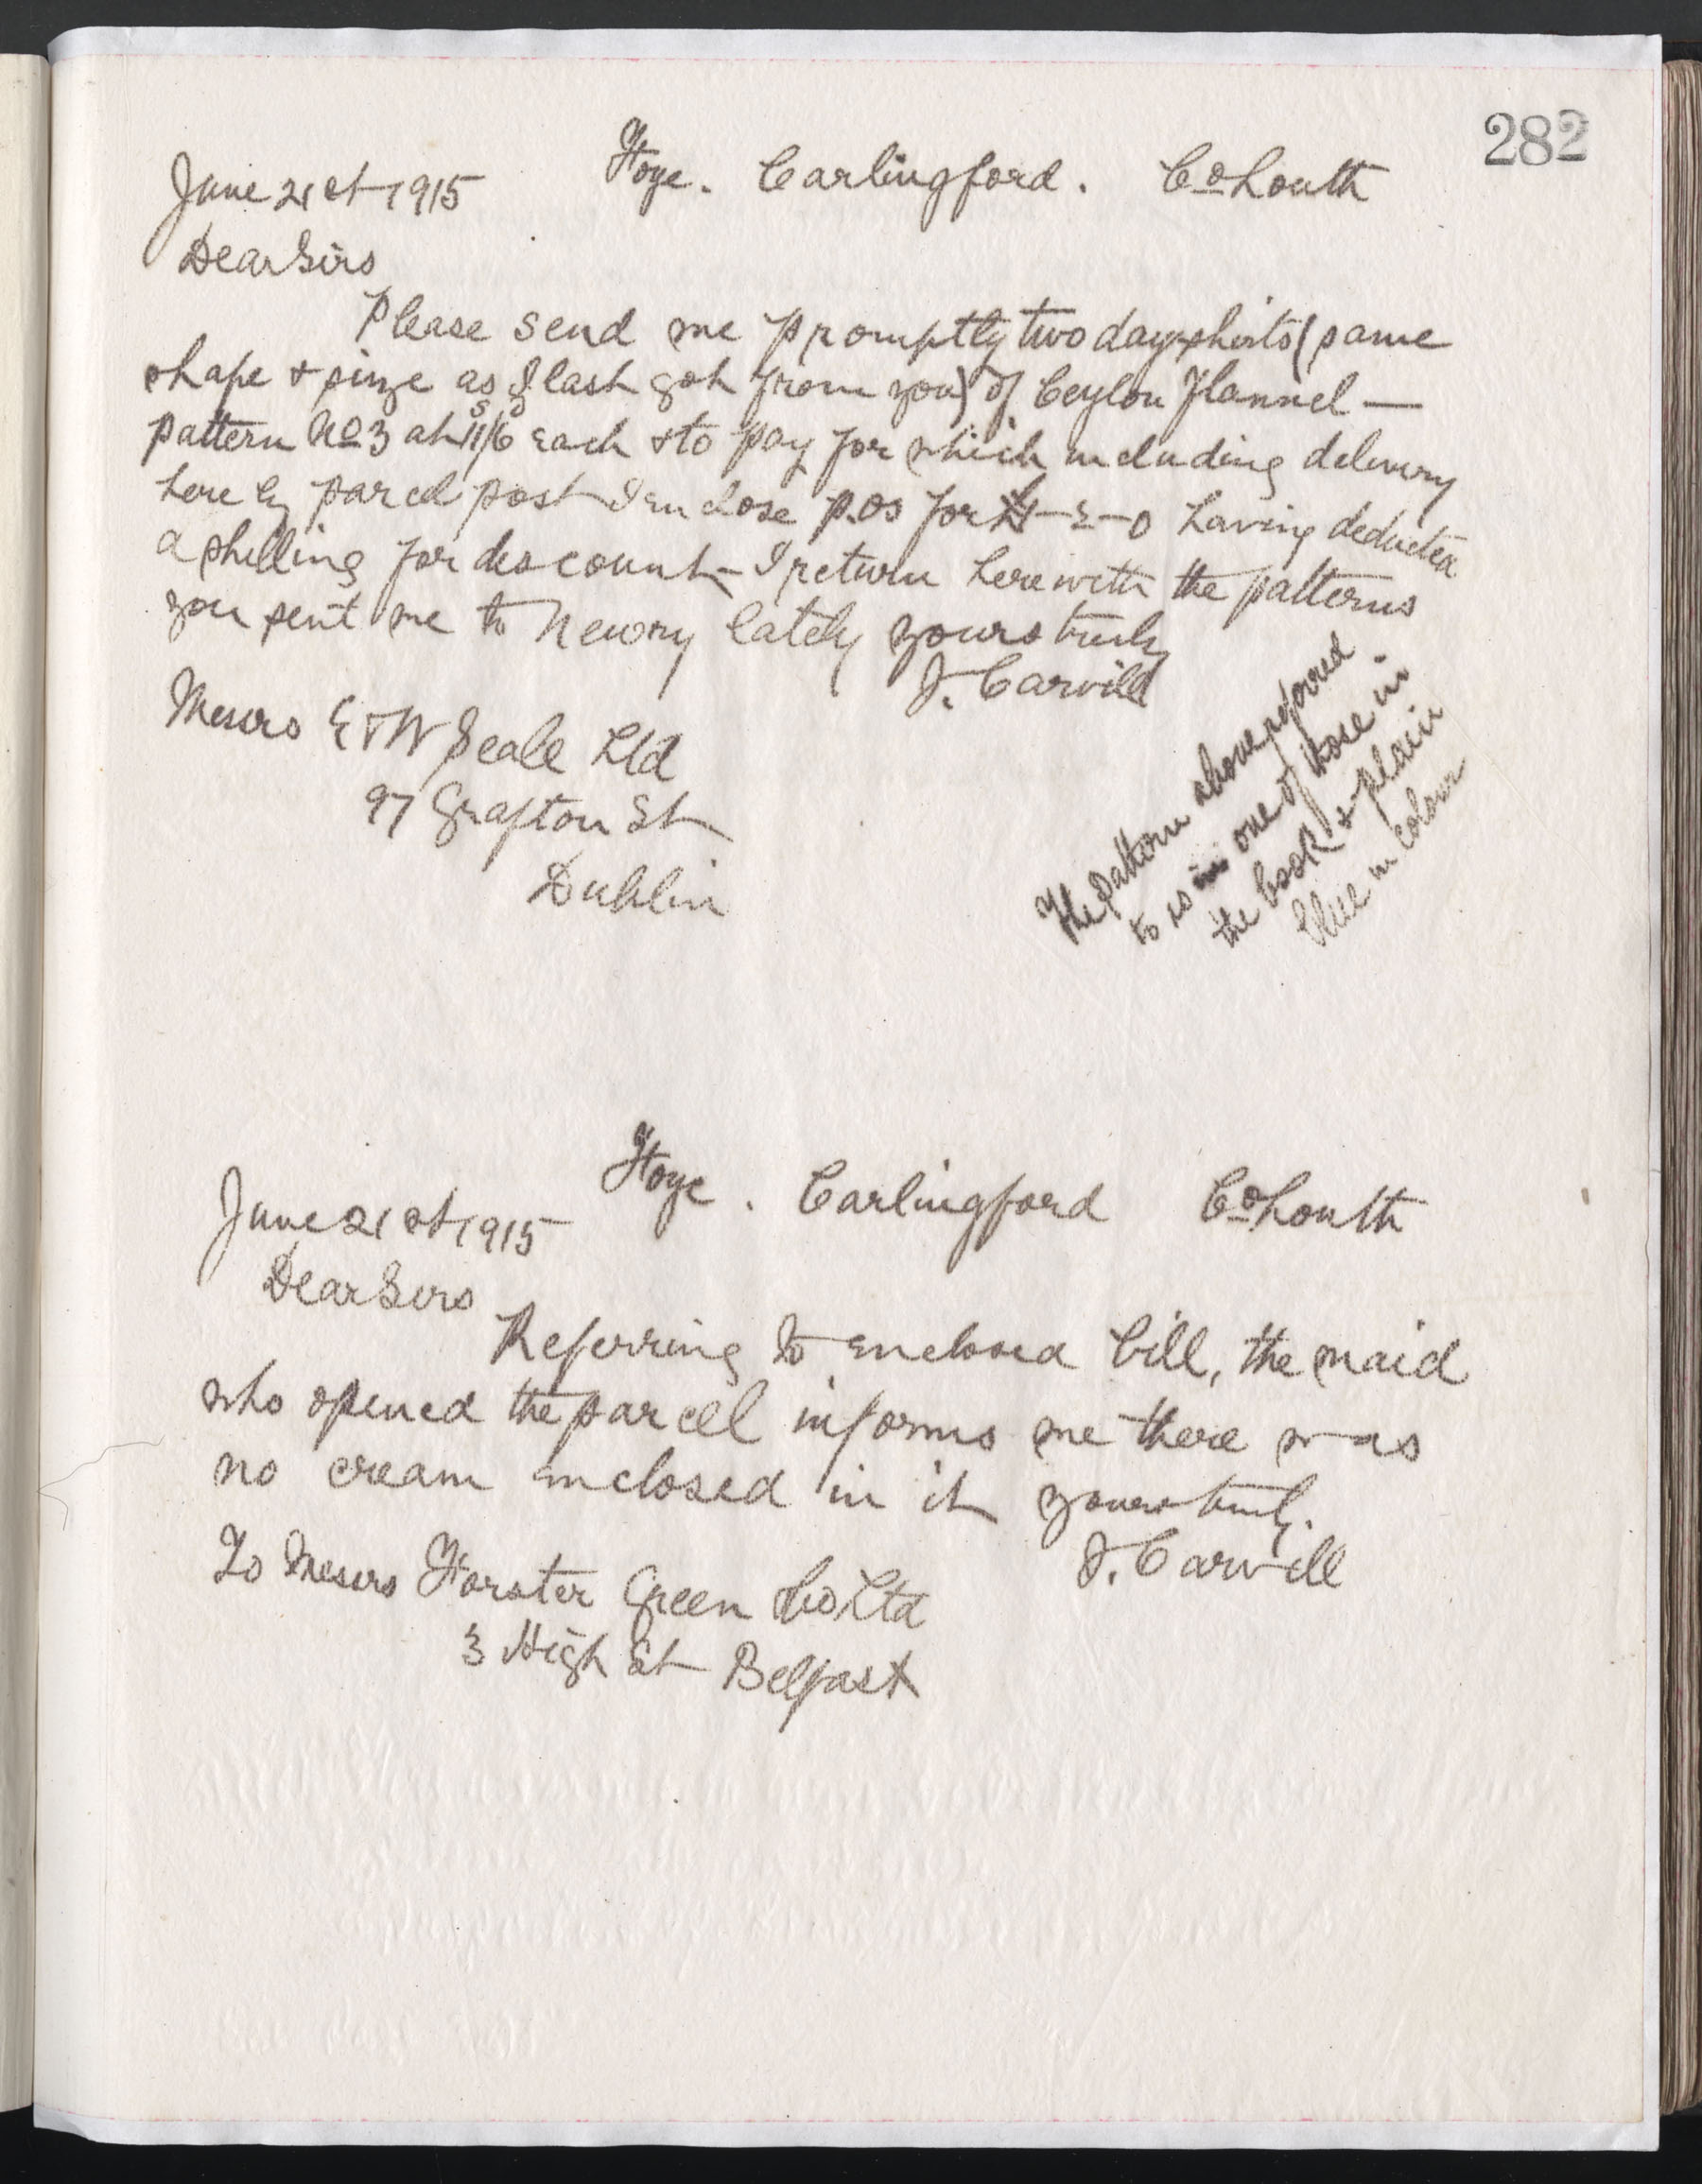 282
Foye. Carlingford. Co Louth
June 21st 1915
Dear Sirs
Please send me promptly two day shirts (same
shape & size as I last got from you) of Ceylon Flannel —
pattern No 3 at 11s/6d each & to pay for which including delivery
here by parcel post I enclose p.os for £1-2-0 having deducted
a shilling for discount - I return herewith the patterns
you sent me to Newry lately yours truly
J. Carvill
Messrs E & W Seale Ltd
97 Grafton St
Dublin
The pattern above referred
to is one of those in
the book & plain
blue in colour
Foye. Carlingford Co Louth
June 21st 1915
Dear Sirs
Referring to enclosed bill, the maid
who opened the parcel informs me there was
no cream enclosed in it yours truly.
J. Carvill
To Messrs Forster Green Co Ltd
3 High St Belfast